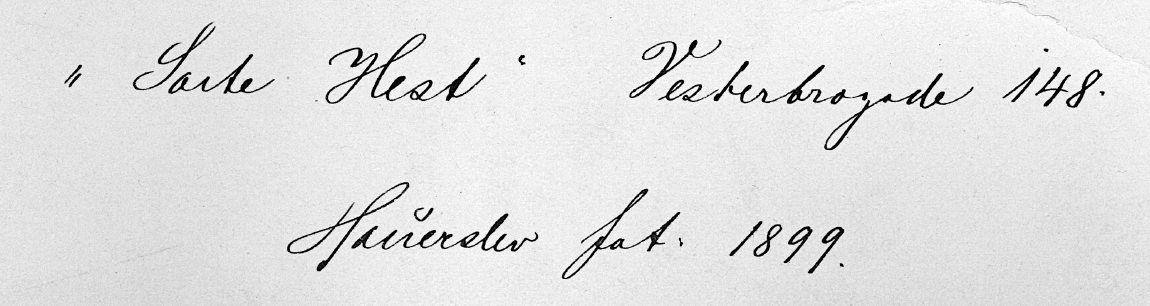 „Sorte Hest“ Vesterbrogade 148.
Hauerslev fot. 1899.